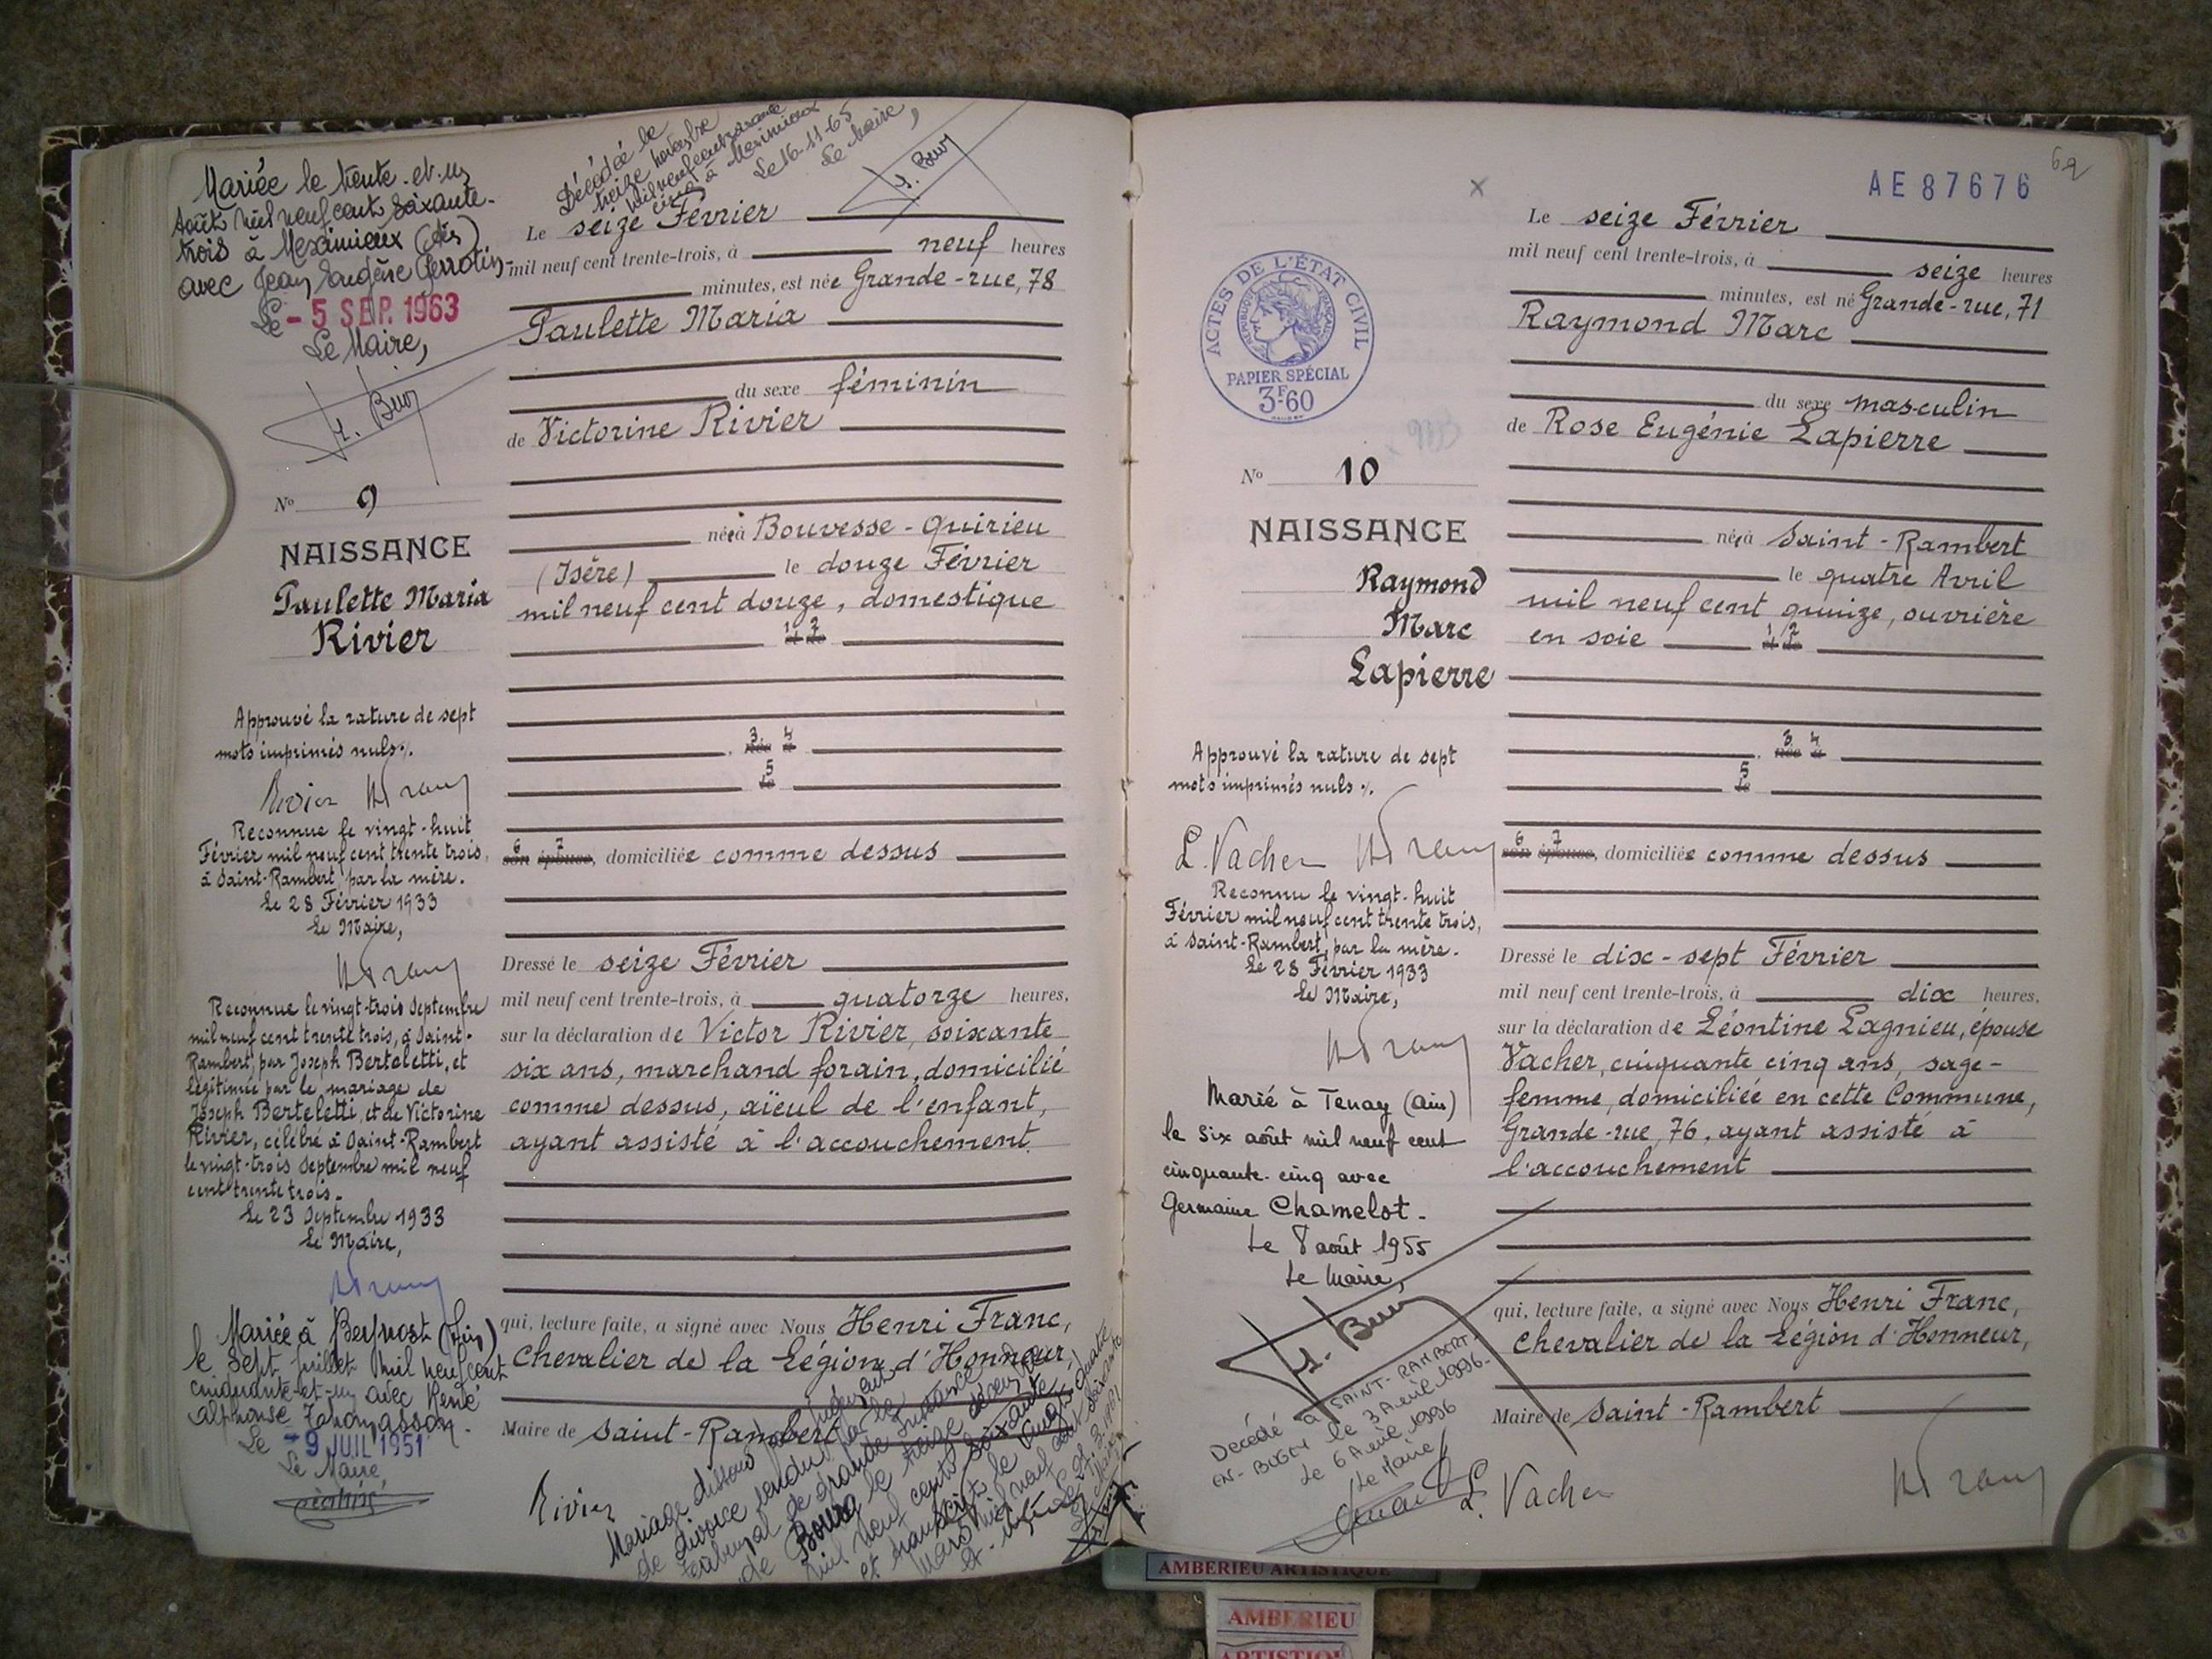 Mariée le trente-et-un
Août mil neuf cent soixante-
trois à Meximieux (Ain)
avec Jean Eugène
Le - 5 SEP. 1963
Le Maire,
Décédée le
treize novembre
mil neuf cent soixante
cinq à Meximieux
Le 16-11-65
Le Maire,
No 9
NAISSANCE
Paulette Maria
Rivier
Approuvé la rature de sept
mots imprimés nuls.
Rivier
Reconnue le vingt-huit
Février mil neuf cent trente trois,
à Saint-Rambert, par la mère.
Le 28 Février 1933
Le Maire,
Reconnue le vingt-trois Septembre
mil neuf cent trente trois, à Saint-
Rambert, par Joseph Berteletti, et
légitimée par le mariage de
Joseph Berteletti, et de Victorine
Rivier, célébré à Saint-Rambert
le vingt-trois Septembre mil neuf
cent trente trois.
Le 23 Septembre 1933
Le Maire,
Mariée à Beynost (Ain)
le sept juillet mil neuf cent
cinquante-et-un avec René
Alphonse Thomasson.
Le - 9 JUIL 1951
Le Maire,
Le seize Février
mil neuf cent trente-trois, à neuf heures
minutes, est née Grande-rue, 78
Paulette Maria
du sexe féminin
de Victorine Rivier
née à Bouvesse-Quirieu
(Isère) le douze Février
mil neuf cent douze, domestique
1 2
3 4
5
6 7
son épouse, domiciliée comme dessus
Dressé le seize Février
mil neuf cent trente-trois, à quatorze heures,
sur la déclaration de Victor Rivier, soixante
six ans, marchand forain, domicilié
comme dessus, aïeul de l'enfant,
ayant assisté à l'accouchement.
qui, lecture faite, a signé avec Nous Henri Franc,
Chevalier de la Légion d'Honneur,
Maire de Saint-Rambert
Rivier
Mariage dissous par jugement
de divorce rendu par le
Tribunal de Grande Instance
de Bourg le treize
mil neuf cent soixante
et transcrit le vingt quatre
Mars mil neuf cent soixante
et un
AE87676
69
ACTES DE L'ÉTAT CIVIL
RÉPUBLIQUE FRANÇAISE
PAPIER SPÉCIAL
3F60
No 10
NAISSANCE
Raymond
Marc
Lapierre
Approuvé la rature de sept
mots imprimés nuls.
L. Vacher
Reconnu le vingt-huit
Février mil neuf cent trente trois,
à Saint-Rambert, par la mère.
Le 28 Février 1933
Le Maire,
Marié à Tenay (Ain)
le six août mil neuf cent
cinquante-cinq avec
Germaine Chamelot.
Le 8 août 1955
Le Maire,
Décédé à SAINT-RAMBERT-
EN-BUGEY le 3 Avril 1996.
Le 6 Avril 1996
Le Maire
Le seize Février
mil neuf cent trente-trois, à seize heures
minutes, est né Grande-rue, 71
Raymond Marc
du sexe masculin
de Rose Eugénie Lapierre
née à Saint-Rambert
le quatre Avril
mil neuf cent quinze, ouvrière
en soie 1 2
3 4
5
6 7
son épouse, domiciliée comme dessus
Dressé le dix-sept Février
mil neuf cent trente-trois, à dix heures,
sur la déclaration de Léontine Lagnieu, épouse
Vacher, cinquante cinq ans, sage-
femme, domiciliée en cette Commune,
Grande-rue, 76, ayant assisté à
l'accouchement
qui, lecture faite, a signé avec Nous Henri Franc,
Chevalier de la Légion d'Honneur,
Maire de Saint-Rambert
L. Vacher
AMBERIEU ARTISTIQUE
AMBERIEU
ARTISTIQUE